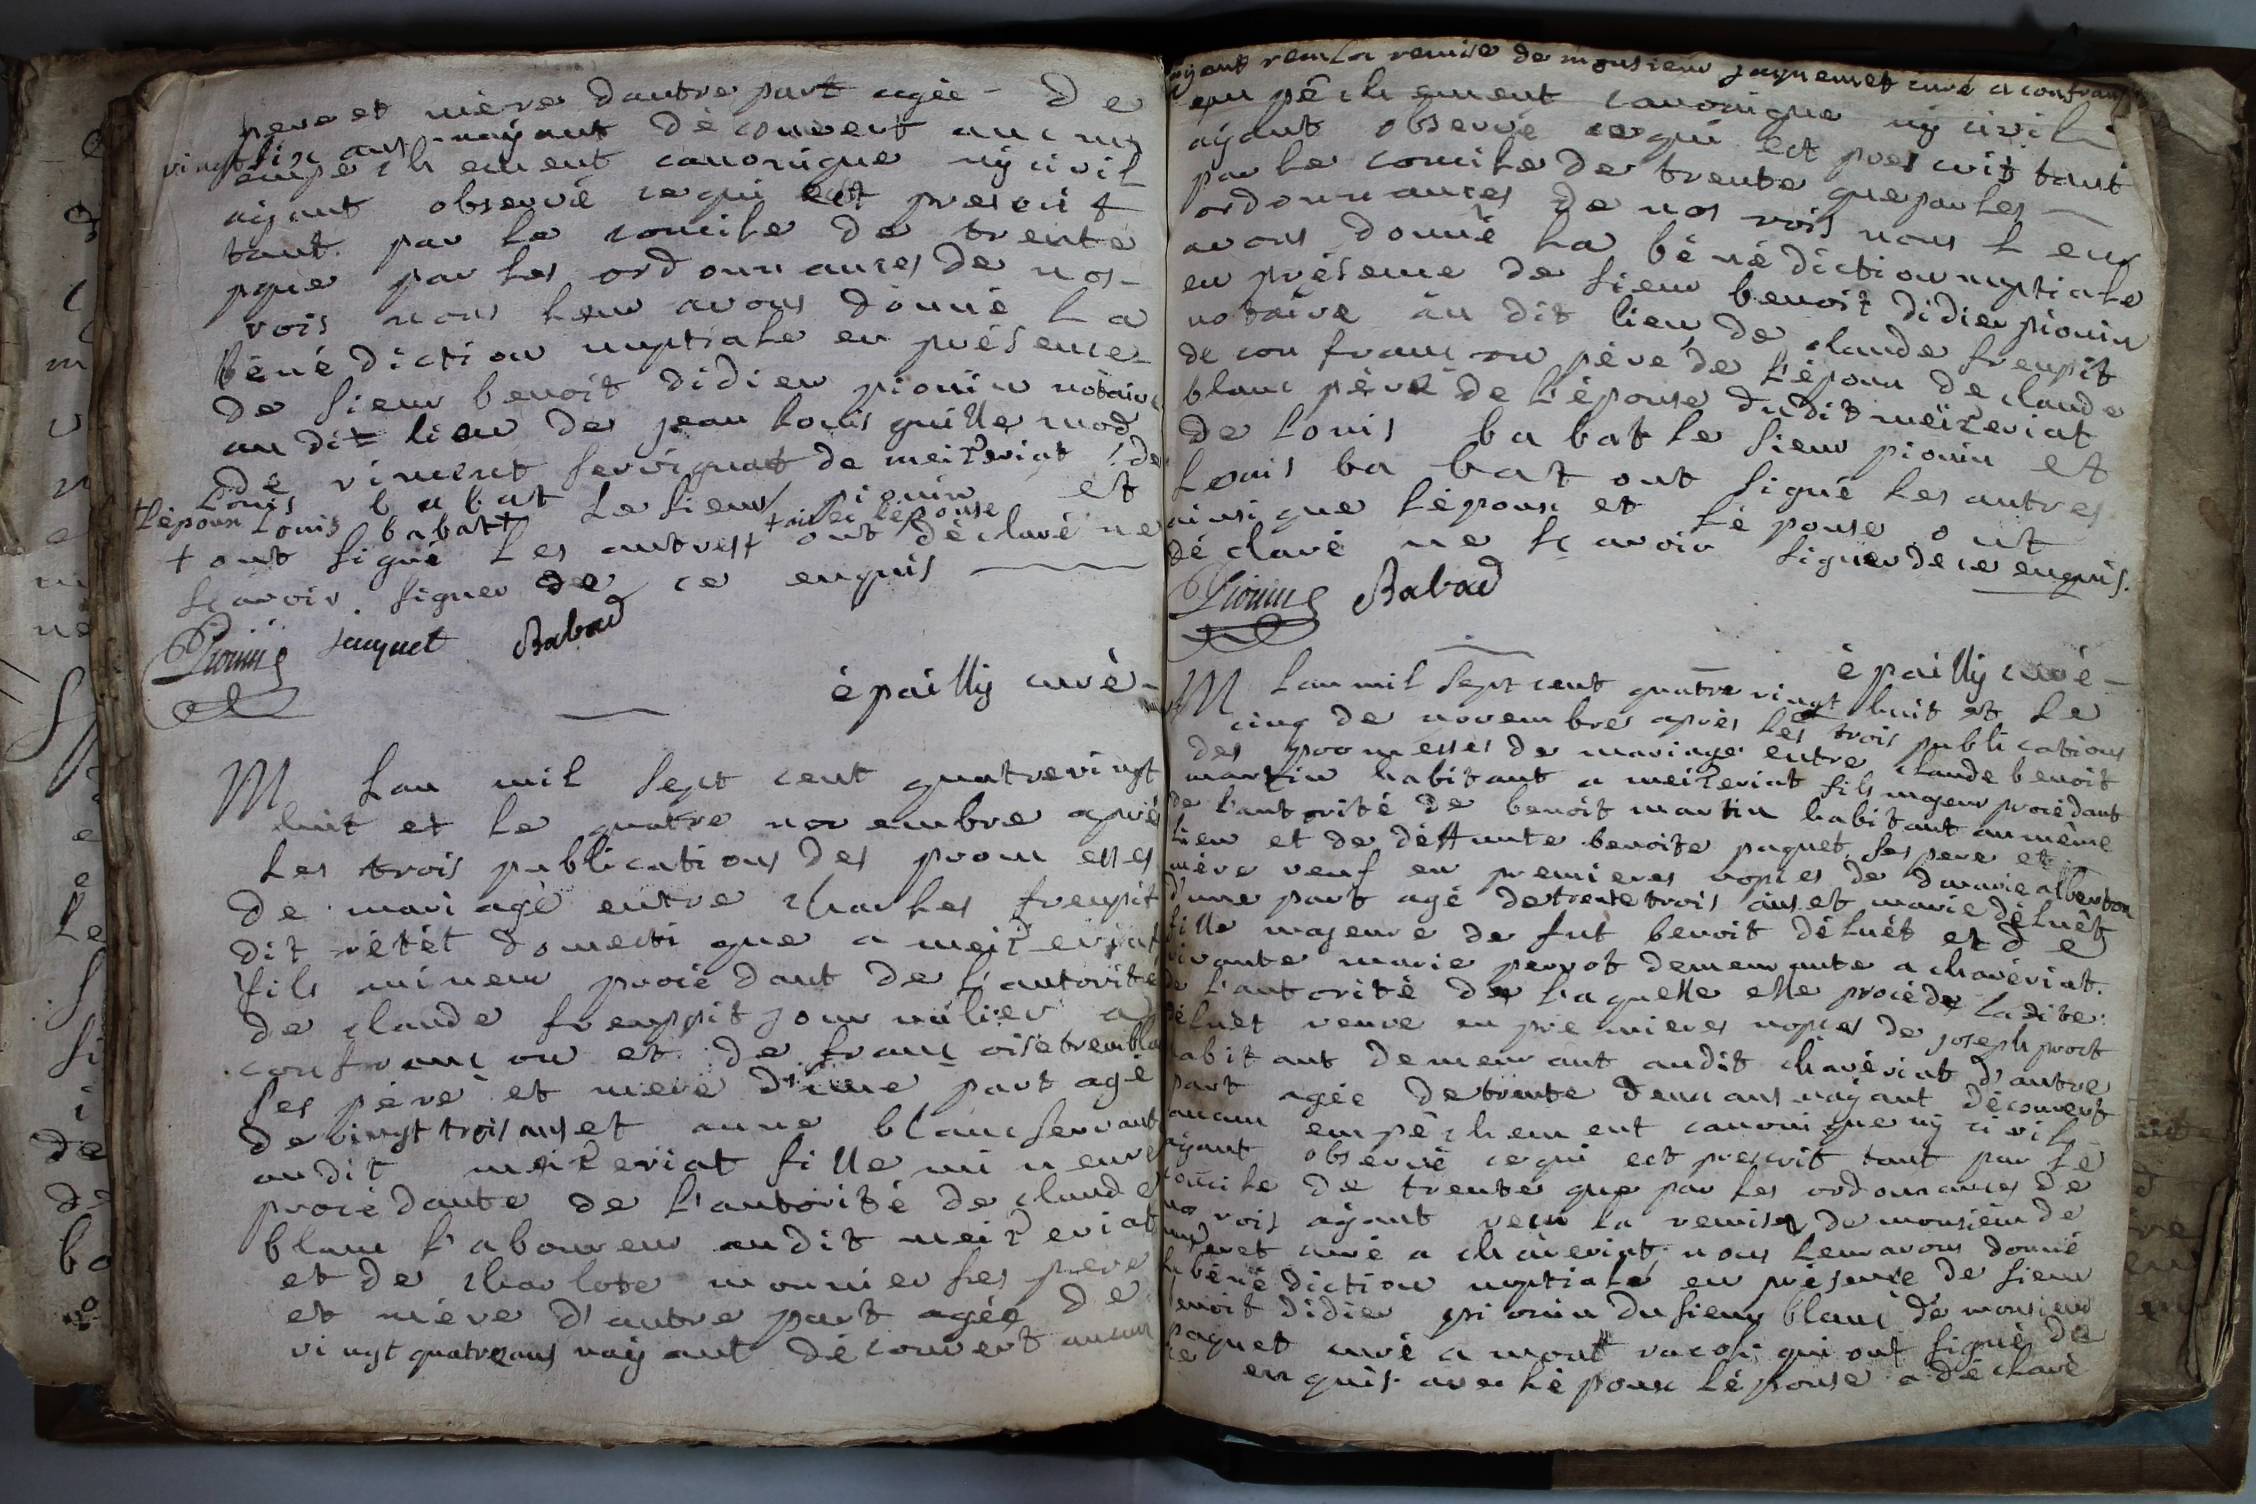 pere et mère dautre part agée - de
vingt six ans nayant découvert aucun
empéchement canonique ny civil
ayant observé ce qui est prescrit
tant par le concile de trente
que par les ordonnances de nos -
rois nous leur avons donné la
bénédiction nuptiale en présence
de sieur benoit didier piouin notaire
au dit lieu de jean louis guillemod
de viment servignat de meizeriat de
louis babat le sieur piouin et
+ lépoux louis babatt + avec lépouse
+ ont signé les autres + ont déclaré ne
scavoir signer de ce enquis
Piouin jauquet Babad
épailly curé -
M Lan mil sept cent quatrevingt
huit et le quatre novembre apré
les trois publications des promesses
de mariage entre charles frenpit
dit rétét domestique a meizeriat
fils mineur procédant de l'autorité
de claude frenpit journalier a
confrancon et de francoise trembla
ses pére et mere d'une part agé
de vingt trois ans et anne blanc servant
audit meizeriat fille mineure
procédante de l'autorité de claude
blanc laboureur audit meizeriat
et de charlote monnier ses pere
et mére d'autre part agée de
vingt quatre ans nayant découvert aucun
ayant recu la remise de monsieur jayuemet curé a confranc
empéchement canonique ny civil
ayant observé ce qui est prescrit tant
par le concile de trente que par les
ordonnances de nos rois nous leur
avons donné la bénédiction nuptiale
en présence de sieur benoit didier piouin
notaire au dit lieu de claude frenpit
de confrancon pére de lépoux de claude
blanc pére de l'épouse dudit meizeriat
de louis babat le sieur piouin et
louis babat ont signé les autres
ainsi que lépoux et lépouse ont
déclaré ne scavoir signer de ce enquis.
Piouin Babad
épailly curé -
M Lan mil sept cent quatre vingt huit et le
cinq de novembre après les trois publications
des promesses de mariage entre claude benoit
martin habitant a meizeriat fils majeur procédant
de l'autorité de benoit martin habitant au même
lieu et de déffunte benoite paquet ses pere et
mére veuf en premieres nopces de dmarie alberton
d'une part agé de trente trois ans et marie déluét
fille majeure de fut benoit déluét et de
vivante marie perrot demeurante a chavériat.
de l'autorité de laquelle elle procéde ladite
déluét veuve en premieres nopces de joseph prost
habitant demeurant audit chavériat d'autre
part agée de trente deux ans nayant découvert
aucun empéchement canonique ny civil -
ayant observé ce qui est prescrit tant par le
concile de trente que par les ordonnances de
nos rois ayant recu la remise de monsieur de
curé a chaveriat nous leur avons donné
la bénédiction nuptiale en présence de sieur
benoit didier piouin du sieur blanc de monsieur
paquet curé a montracol qui ont signé de
ce enquis avec lépoux lépouse a déclaré